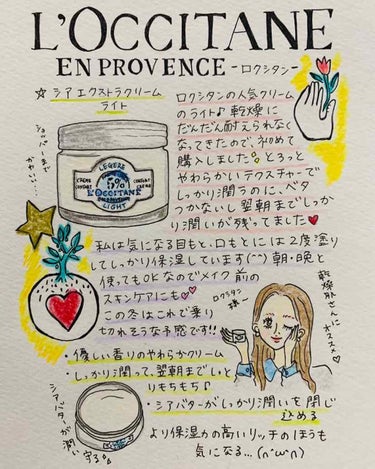 L'OCCITANE
EN PROVENCE -ロクシタン-
☆ シアエクストラクリーム
ライト
ロクシタンの人気クリーム
のライト♪ 乾燥に
だんだん耐えられなく
なってきたので、初めて
購入しました。とろっと
やわらかいテクスチャーで
しっかり潤うのに、ベタ
つかないし翌朝までしっか
り潤いが残ってました♥
LEGERE
5%
L'OCCITANE
LIGHT
私は気になる目もと、口もとには2度塗り
してしっかり保湿しています(^^) 朝・晩と
使ってもOKなのでメイク前の
スキンケアにも♥♥
この冬はこれで乗り
切れそうな予感です!!
乾燥肌さんに
オススメ♡
・優しい香りのやわらかクリーム
・しっかり潤って、翌朝までしっと
りもちもち♪
・シアバターがしっかり潤いを閉じ
込める
シアバターが潤い守る
より保湿力の高いリッチのほうも
気になる…(∩'ω'∩)